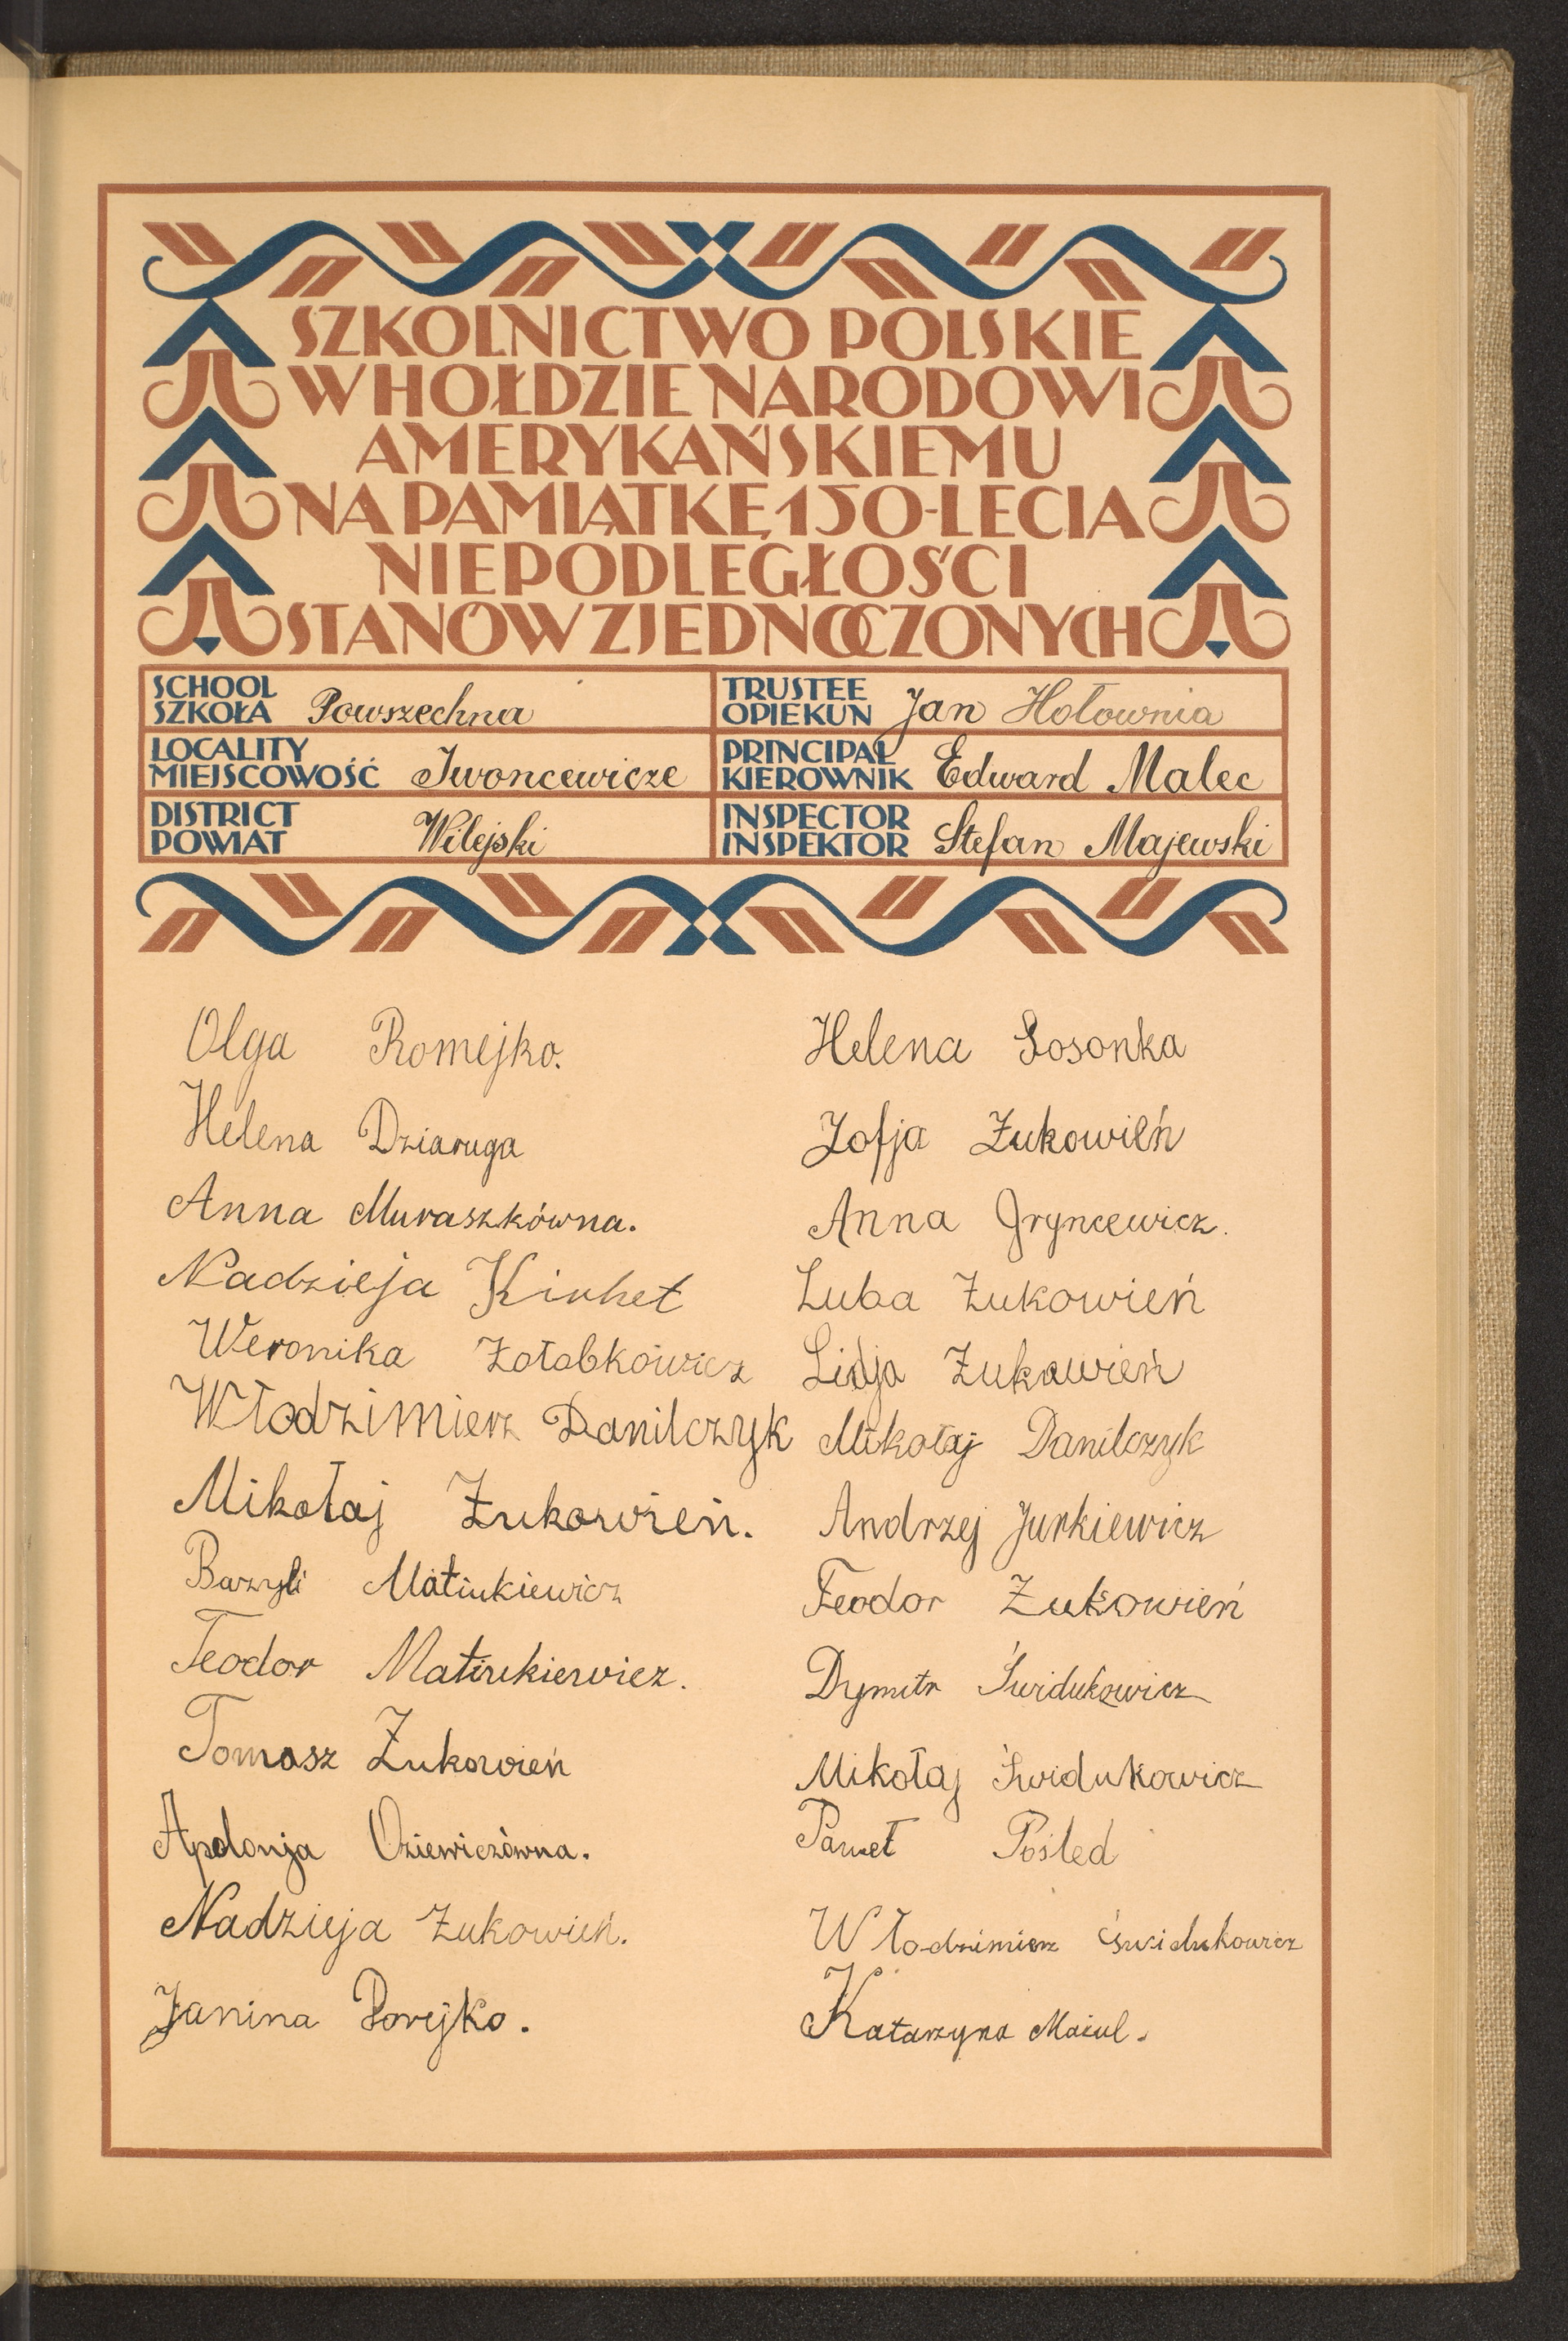 SZKOLNICTWO POLSKIE
W HOŁDZIE NARODOWI
AMERYKAŃSKIEMU
NA PAMIĄTKĘ 150-LECIA
NIEPODLEGŁOŚCI
STANÓW ZJEDNOCZONYCH
SCHOOL
SZKOŁA Powszechna
TRUSTEE
OPIEKUN Jan Hołownia
LOCALITY
MIEJSCOWOŚĆ Iwoncewicze
PRINCIPAL
KIEROWNIK Edward Malec
DISTRICT
POWIAT Wilejski
INSPECTOR
INSPEKTOR Stefan Majewski
Olga Romejko.
Helena Dziaruga
Anna Muraszkówna.
Nadzieja Kirhet
Weronika Żołobkowicz
Włodzimierz Danilczyk
Mikołaj Żukowień.
Bazyli Matiukiewicz
Teodor Matiukiewicz.
Tomasz Żukowień
Apolonja Oziewiczówna.
Nadzieja Żukowień.
Janina Borejko.
Helena Sosonka
Zofja Żukowień
Anna Gryncewicz.
Luba Żukowień
Lidja Żukowień
Mikołaj Danilczyk
Andrzej Jurkiewicz
Feodor Żukowień
Dymitr Świdukowicz
Mikołaj Świdukowicz
Paweł Pośled
Włodzimierz Świdukowicz
Katarzyna Mażul.